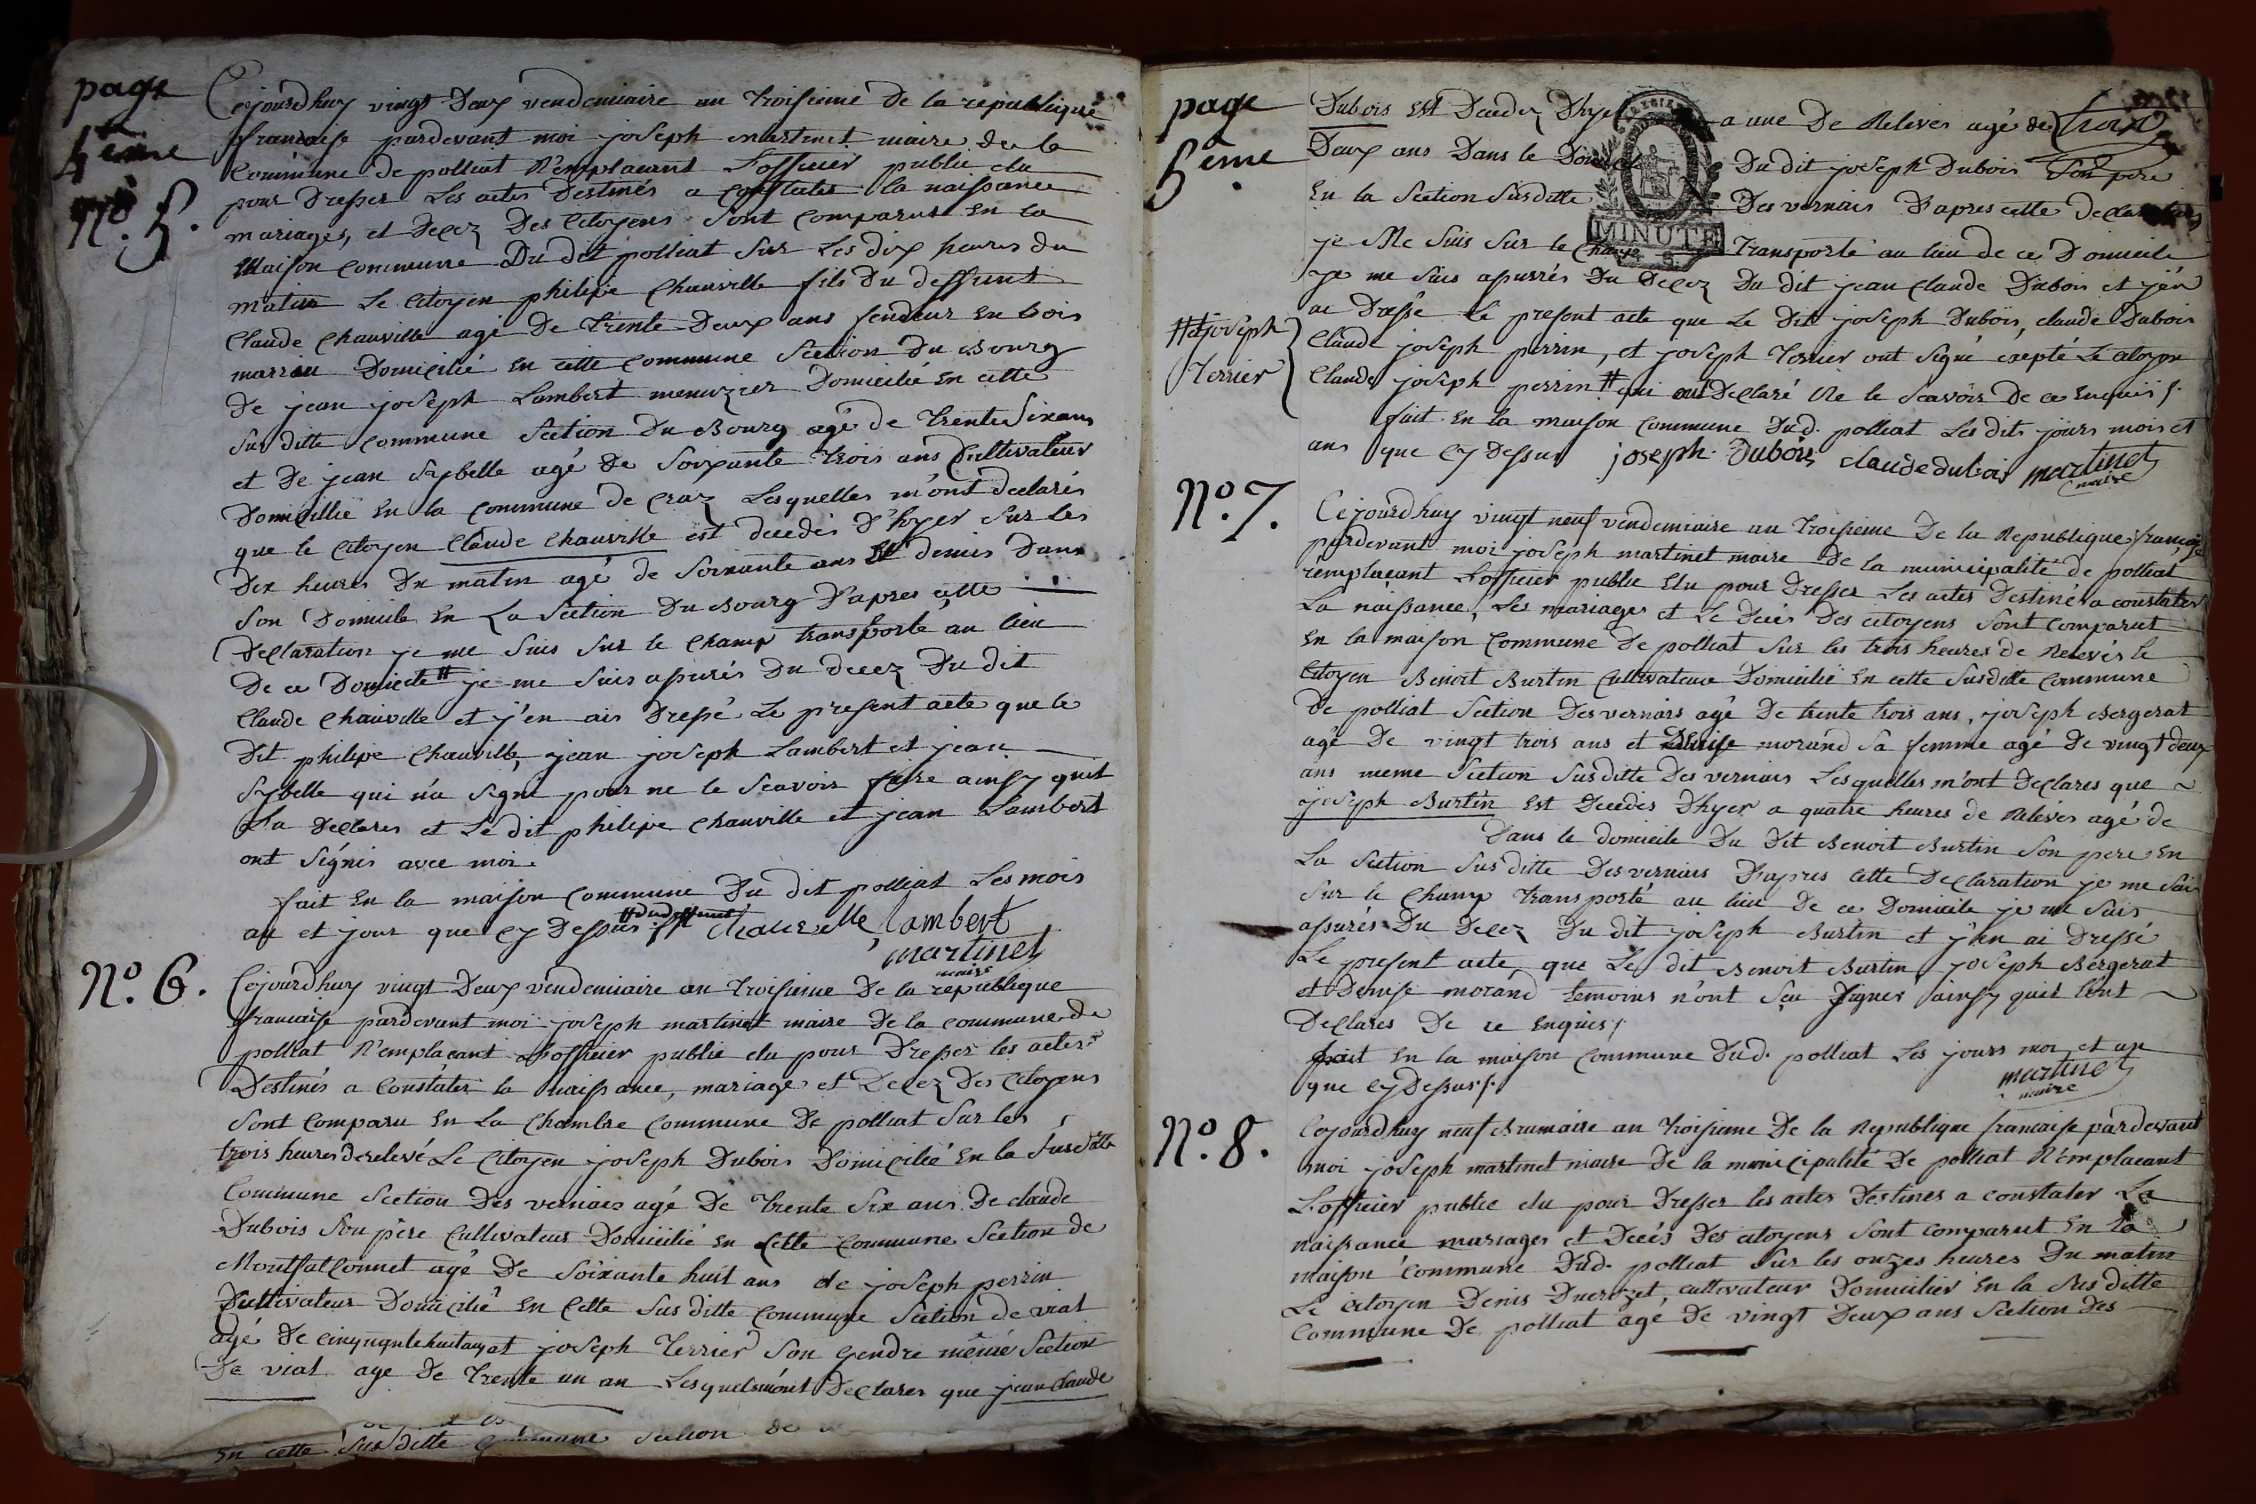 page
4ème
No. 5.
Cejourdhuy vingt Deux vendemiaire an Troisieme De la republique
francaise pardevant moi joseph martinet maire de la
Commune de polliat R'emplacant L'officier public elu
pour Dresser Les actes Destinés a Constater la naissance
mariages, et Decez Des Citoyens Sont Comparus En la
Maison Commune Du dit polliat Sur Les dix heures du
matin Le Citoyen philipe Chauville fils Du deffunt
Claude Chauville agé De Trente Deux ans fendeur En bois
marriu Domicilié En cette Commune Section Du Bourg
De jean joseph Lambert menuzier Domicilié En cette
Sus ditte Commune Section Du Bourg agé de Trente Six ans
et De jean Sybelle agé De Soixante Trois ans Cultivateur
Domicillié En la Commune de Craz Lesquelles m'ont declarés
que le Citoyen Claude Chauville est decedés D'hyer Sur les
Dix heures Du matin agé de Soixante ans Et demis Dans
Son Domicile En La Section Du Bourg D'apres cette
Declaration je me Suis Sur le Champ transporté au lieu
De ce Domicile # je me Suis assurés Du decez Du dit
Claude Chauville et j'en ais Dressé Le present acte que le
Dit philipe Chauville, jean joseph Lambert et jean
Sybelle qui n'a Signé pour ne le Scavoir faire ainsy quil
L'a Declarés et Le dit philipe Chauville et jean Lambert
ont Signés avec moi
fait En la maison Commune Du dit polliat Les mois
an et jour que Cy Dessus # dudeffunt Chauvelle Lambert
martinet
maire
No. 6.
Cejourdhuy vingt Deux vendemiaire an Troisieme De la republique
francaise pardevant moi joseph martinet maire De la commune de
polliat R'emplacant L'officier public elu pour Dresser les actes
Destinés a Constater la naissance, mariage et Decez Des Citoyens
Sont Comparu En La Chambre Commune De polliat Sur les
trois heures de relevé Le Citoyen joseph Dubois Domicilié En la Susditte
Commune Section Des vernais agé De Trente Six ans De claude
Dubois Son père Cultivateur Domicilié En Cette Commune Section de
Montfalconnet agé De Soixante huit ans de joseph perrin
Cultivateur Domicilié En Cette Sus ditte Commune Section de viat
agé De cinquante huit ans et joseph Terrier Son Gendre même Section
De viat age De Trente un an Lesquels m'ont Declarés que jean claude
En cette Sus ditte Commune Section de
page
5ème
Dubois Est Decedez Dhyer a une De Relevés agé de Trois
Deux ans Dans le Du dit joseph Dubois Son pere
En la Section Susditte Des vernais D'apres cette Declaration
je Me Suis Sur le Champ Transporté au lieu de ce Domicile
je me Suis assurrés Du Decez Du dit jean Claude Dubois et j'en
ai Dressé le present acte que Le Dit joseph Dubois, claude Dubois
Claude joseph perrin, et joseph Terrier ont Signé éxepté Le citoyen
Claude joseph perrin # qui ont Declaré Ne le Scavoir De ce Enquis /.
# et joseph
Terrier
fait En la maison Commune Dud. polliat Les dits jours mois et
ans que Cy Dessus joseph Dubois claude dubois martinet
maire
No. 7.
Cejourdhuy vingt neuf vendemiaire an Troisieme De la Republique francaise
pardevant moi joseph martinet maire De la municipalité de polliat
remplacant L'officier public Elu pour Dresser Les actes Destiné a constater
La naissance, Les mariages et Le Decés Des citoyens Sont Comparut
En la maison Commune De polliat Sur les trois heures de Relevés le
Citoyen Benoit Burtin Cultivateur Domicilié En cette Susditte Commune
De polliat Section Des vernais agé De trente trois ans, joseph Bergerat
agé De vingt trois ans et Denise morand Sa femme agé De vingt deux
ans meme Section Susditte Des vernais Lesquelles m'ont Declarés que
joseph Burtin Est Decedés Dhyer a quatre heures de Relevés agé de
Dans le domicile Du Dit Benoit Burtin Son pere En
La Section Susditte Des vernais D'apres Cette Declaration je me Suis
Sur le Champ Transporté au lieu De ce Domicile je me Suis
assurés Du Decez Du dit joseph Burtin et j'en ai Dressé
Le present acte que Le dit Benoit Burtin, joseph Bergerat
et Denise morand temoins n'ont Sçu Signer ainsy quil lont
Declares De ce Enquis /.
fait En la maison Commune Dud. polliat Les jours moi et an
que Cy Dessus /.
martinet
maire
No. 8.
Cejourdhuy neuf Brumaire an Troisieme De la Republique francaise pardevant
moi joseph martinet maire De la municipalité De polliat R'emplacant
L'officier public elu pour Dresser les actes Destinés a constater La
naissance mariages et Decés Des citoyens Sont Comparut En la
maison Commune Dud. polliat Sur les onzes heures Du matin
Le citoyen Denis Ducrozet, cultivateur Domicilier En la Sus ditte
Commune De polliat agé De vingt Deux ans Section Des
MINUTE